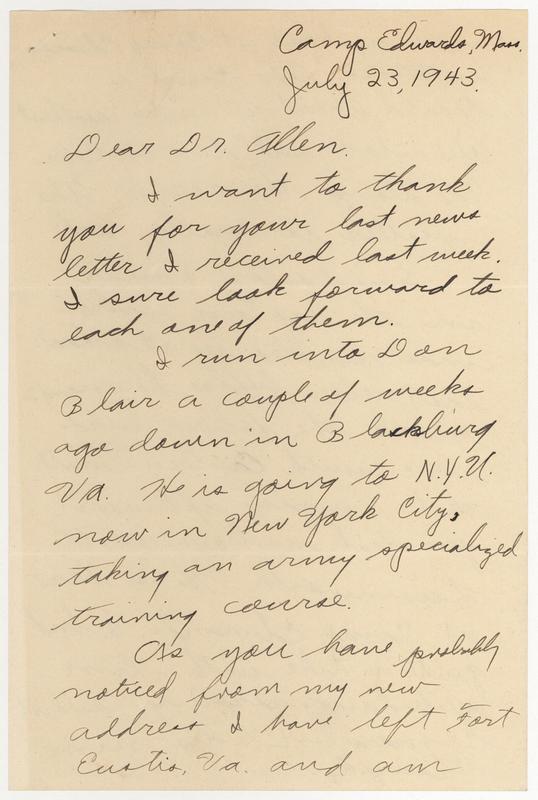 Camp Edwards, Mass.
July 23, 1943.
Dear Dr. Allen.
I want to thank
you for your last news
letter I received last week.
I sure look forward to
each one of them.
I run into Don
Blair a couple of weeks
ago down in Blacksburg
Va. He is going to N.Y.U.
now in New York City,
taking an army specialized
training course.
As you have probably
noticed from my new
address I have left Fort
Eustis, Va. and am